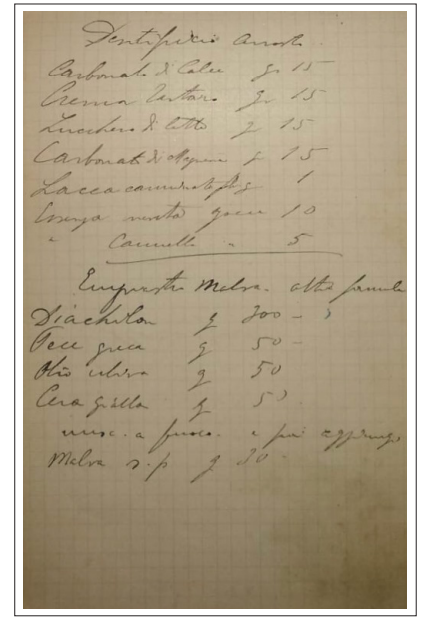 Dentifricio
Carbonato di Calce gr 15
Crema Tartaro gr 15
Zucchero di latte g 15
Carbonato di Magnesia g 15
Lacca carminata g 1
Essenza menta gocce 10
" Cannella " 5
Empiastro Malva. altra formula
Diachilon g 200 -
Pece greca g 50 -
Olio uliva g 50
Cera gialla g 50
a fuoco. e poi aggiungi
Malva s.p g 30 -